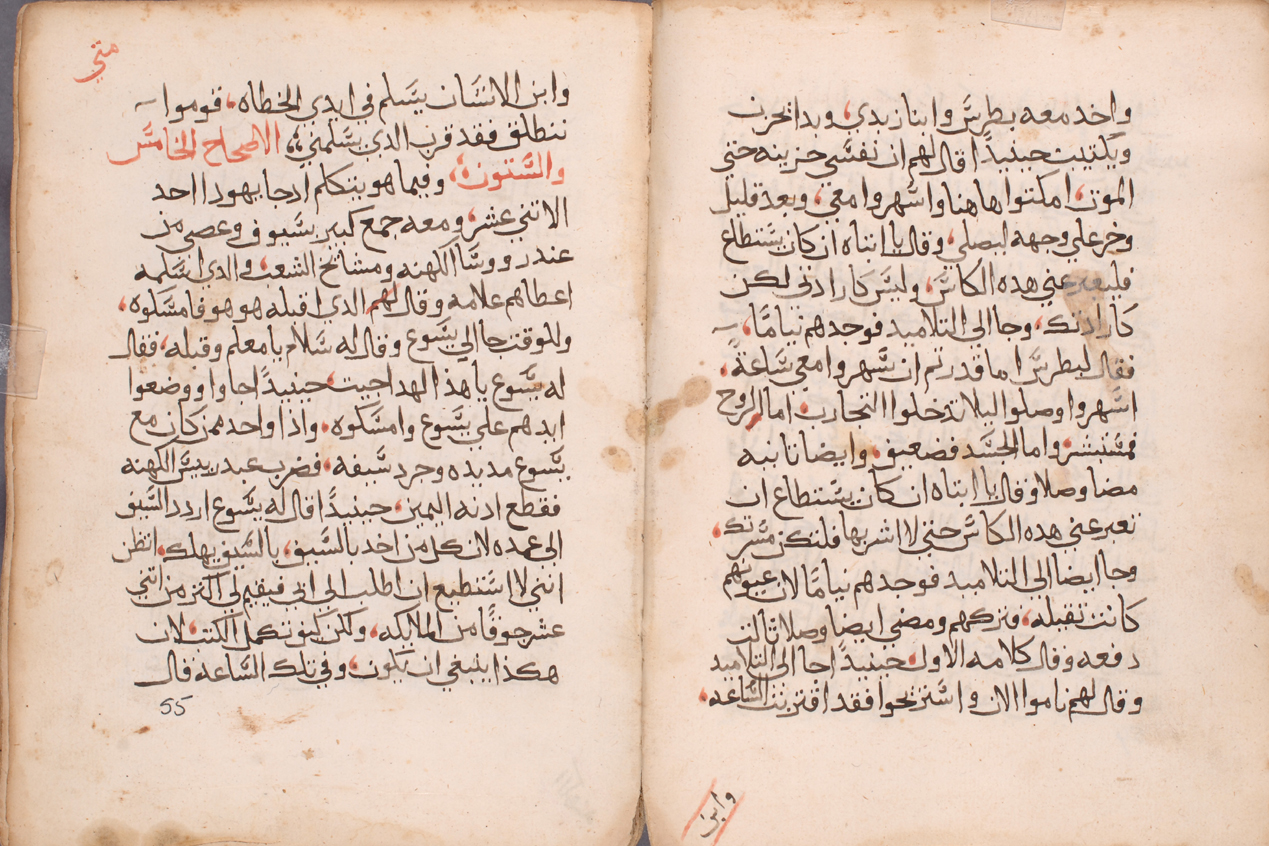 واخد معه بطرس وابنا زبدي، وبدا تحزن
ويكتيت حينيذٍا قال لهم ان نفسي حزينه حتي
الموت، امكتوا هاهنا واسهروا معي، وبعد قليل
وخر علي وجهه ليصلي، وقال يا ابتاه ان كان يستطاع
فليعبر عني هده الكاس، وليس كارادتي لكن
كارادتك، وجا الى التلاميد فوجدهم نيامًا،
فقال لبطرس اما قدرتم ان تسهروا معي ساعةً،
اسهروا وصلوا ليلا تدخلوا التجارب، اما الروح
فمستبشر، واما الجسد فضعيف، وايضا نانيه
مضا وصلا وقال يا ابتاه ان كان يستطاع ان
تعبر عني هده الكاس حتي لا اشربها فلتكن مسرتك،
وجا ايضا الى التلاميد فوجدهم نيامًا لان عيونهم
كانت تقيله، فتركهم ومضي ايضا وصلا تالت
دفعه وقال كلامه الاول، حينيذٍا جا الى التلاميد
وقال لهم ناموا الان واستريحوا فقد اقتربت الساعه،
وابن
متي
وابن الانسان يسلم في ايدي الخطاه، قوموا
ننطلق فقد قرب الدي يسلمني، الاصحاح الخامس
والستون، وفيما هو يتكلم ادجا يهودا احد
الاتني عشر، ومعه جمع كبير بسيوف وعصي من
عند رووسا الكهنه ومشايخ الشعب، والدي اسلمه
اعطاهم علامه وقال لهم الدي اقبله هو هو فامسكوه،
وللوقت جا الي يسوع وقال له سلام يا معلم وقبله، فقال
له يسوع يا هذا الهدا جيت، حينيذٍا جاوا ووضعوا
ايديهم علي يسوع وامسكوه، واذا واحد ممن كان مع
يسوع مد يده وجرد سيفه، فضرب عبد رييس الكهنه
فقطع ادنه اليمين، حينيذٍا قال له يسوع اردد السيف
الى غمده لان كل من اخد بالسيف، بالسيف يهلك، اتظن
انني لا استطيع ان اطلب الي ابي فيقيم لي اكتر من اتني
عشر جوقًا من الملايكه، ولكن كيف تكمل الكتب، لان
هكذا ينبغي ان تكون، وفي تلك الساعه قال
55